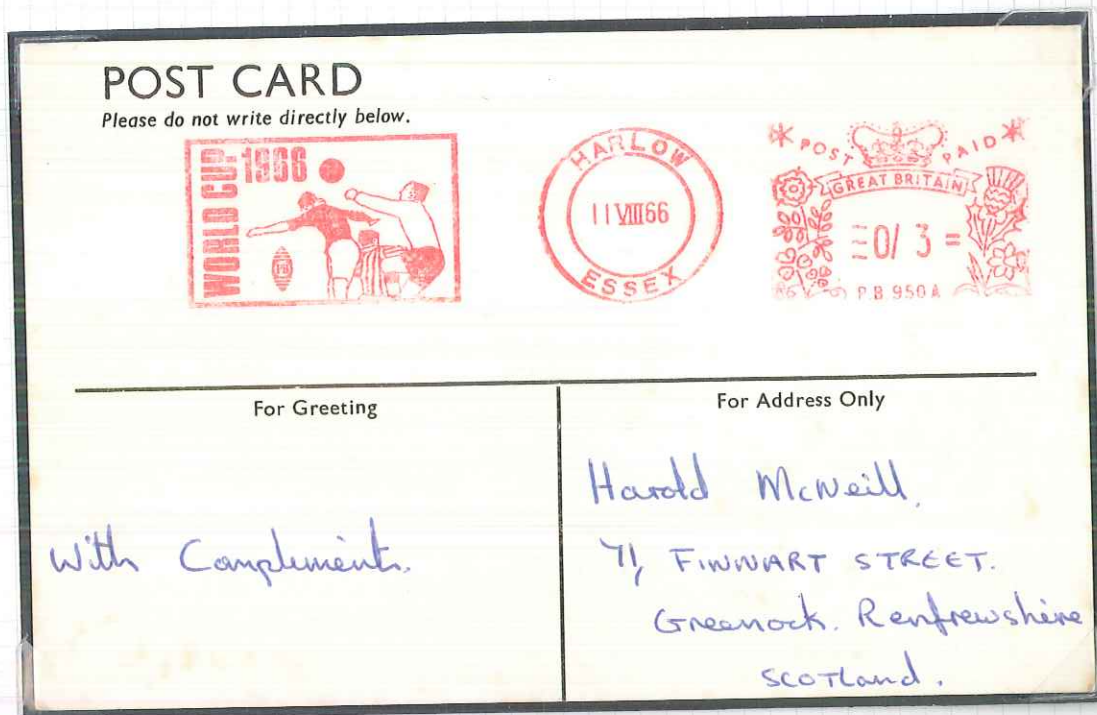 POST CARD
Please do not write directly below.
WORLD CUP 1966
HARLOW
11 VIII 66
ESSEX
POST PAID
GREAT BRITAIN
0/ 3 =
P.B. 950A
For Greeting
For Address Only
With Compliments.
Harold McNeill,
71, FINNART STREET.
Greenock. Renfrewshire
SCOTLand.